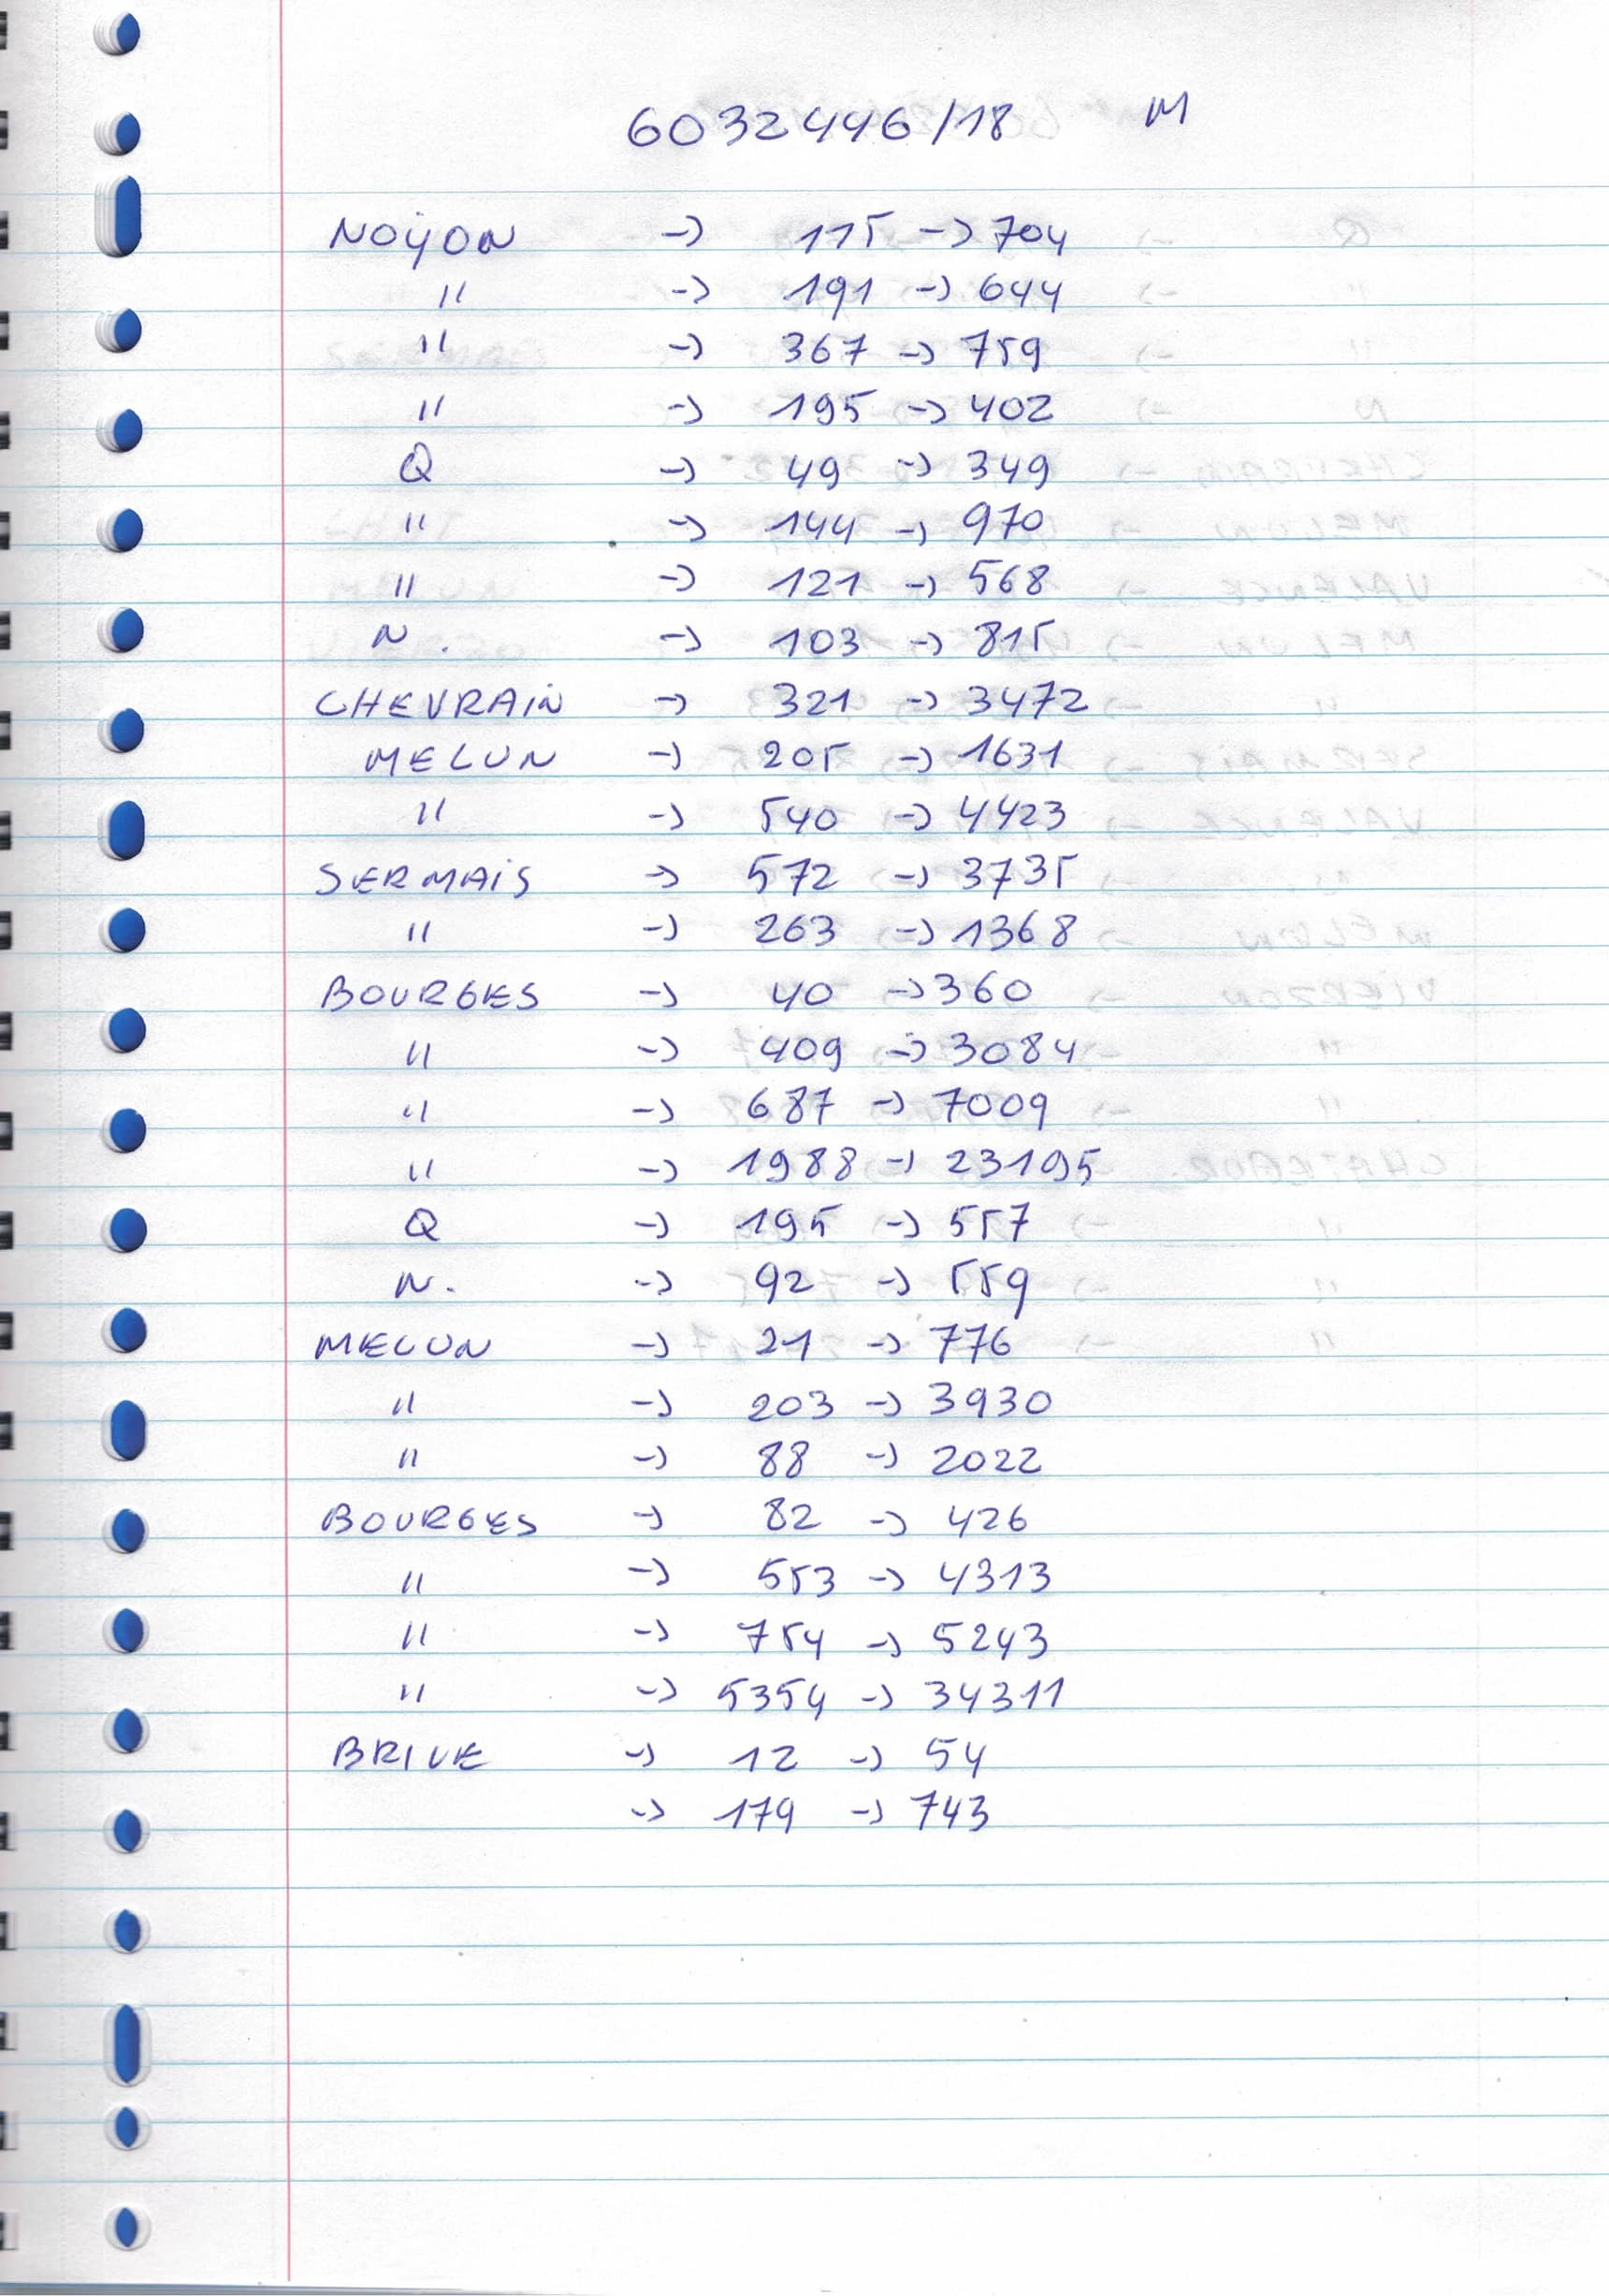 6032446/18 M
NOYON -> 115 -> 704
" -> 191 -> 644
" -> 367 -> 759
" -> 195 -> 402
Q -> 49 -> 349
" -> 144 -> 970
" -> 121 -> 568
N. -> 103 -> 815
CHEVRAIN -> 321 -> 3472
MELUN -> 205 -> 1631
" -> 540 -> 4423
SERMAIS -> 572 -> 3735
" -> 263 -> 1368
BOURGES -> 40 -> 360
" -> 409 -> 3084
" -> 687 -> 7009
" -> 1988 -> 23195
Q -> 195 -> 557
N. -> 92 -> 559
MELUN -> 21 -> 776
" -> 203 -> 3930
" -> 88 -> 2022
BOURGES -> 82 -> 426
" -> 553 -> 4313
" -> 754 -> 5243
" -> 5354 -> 34311
BRIVE -> 12 -> 54
-> 179 -> 743